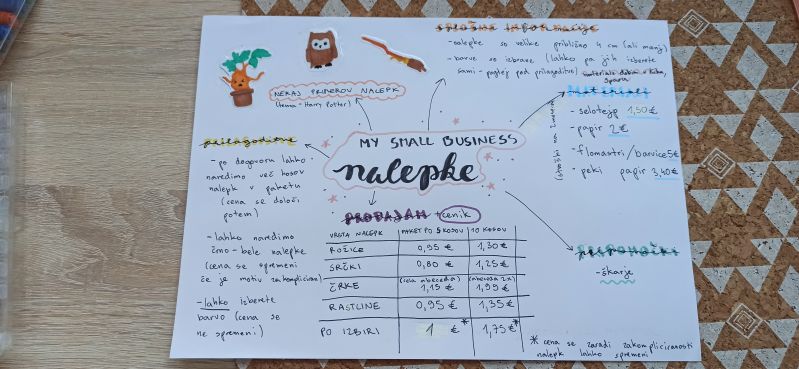 splošne informacije
- nalepke so velike približno 4 cm (ali manj)
- barve so izbrane (lahko pa jih izberete
sami - poglej pod prilagoditve)
NEKAJ PRIMEROV NALEPK
(tema - Harry Potter)
MY SMALL BUSINESS
nalepke
materiali
- selotejp 1,50€
- papir 2€
- flomastri/barvice 5€
- peki papir 3,40€
prilagoditve
- po dogovoru lahko
naredimo več kosov
nalepk v paketu
(cena se določi
potem)
- lahko naredimo
črno - bele nalepke
(cena se spremeni
če je motiv zakompliciran)
- lahko izberete
barvo (cena se
ne spremeni)
PRODAJAM + cenik
VRSTA NALEPK PAKET PO 5 KOSOV 10 KOSOV
ROŽICE 0,95 € 1,30 €
SRČKI 0,80 € 1,25 €
ČRKE (cela abeceda) 1,15 € (abeceda 2x) 1,95 €
RASTLINE 0,95 € 1,35 €
PO IZBIRI 1 €* 1,75 €*
pripomočki
- škarje
* cena se zaradi zakompliciranosti
nalepk lahko spremeni